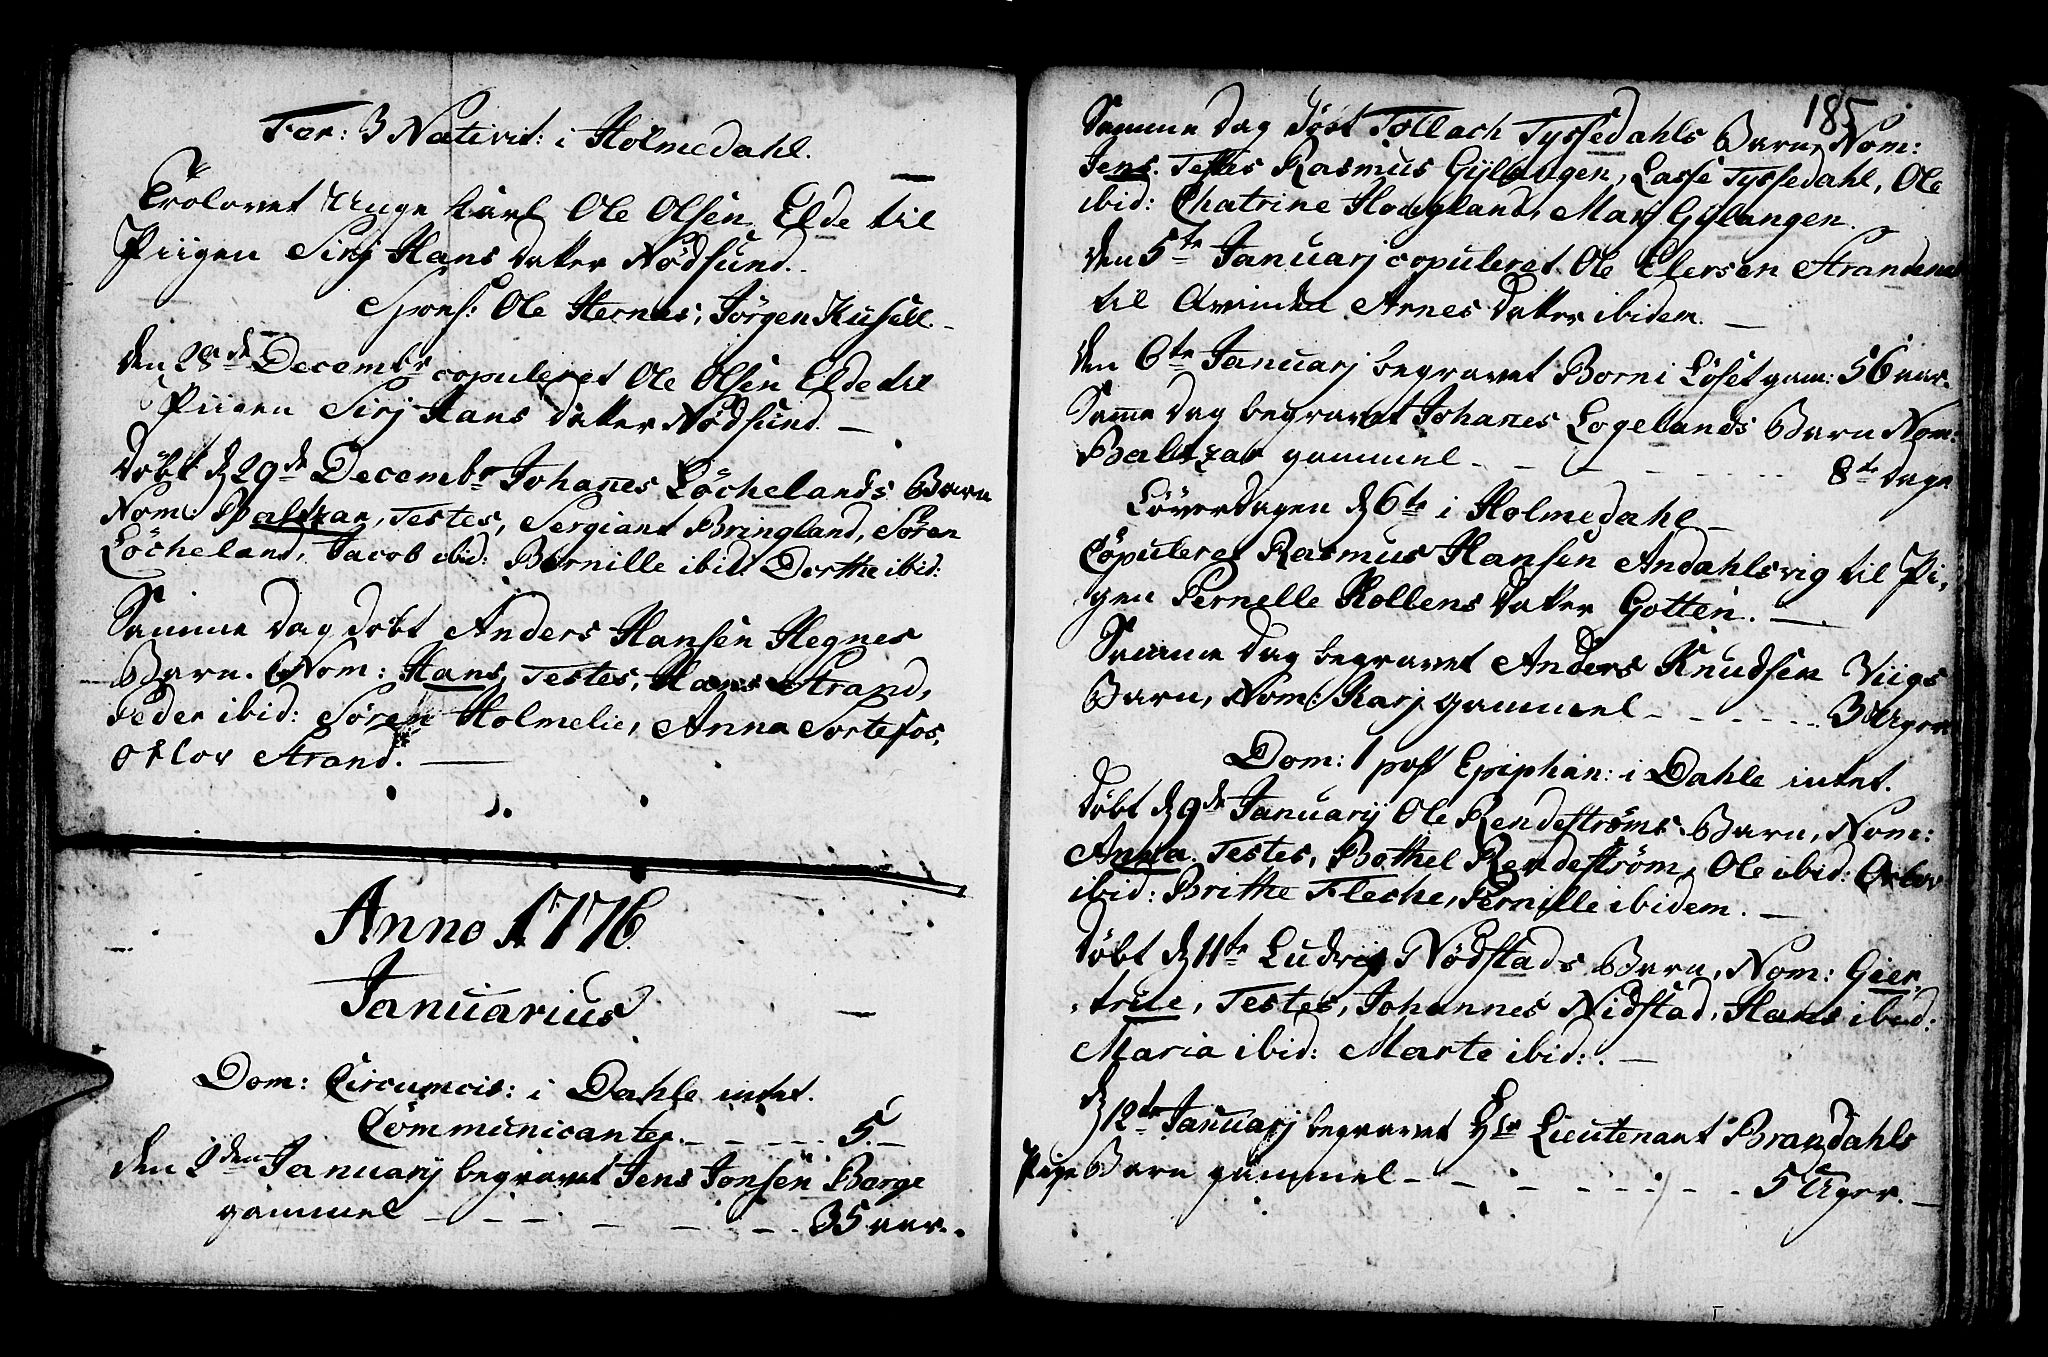 Fer: 3 Nativit: i Holmedahl.
Trolovet Unge karl Ole Olsen Elde til
Piigen Sirj Hans datter Nödsund.
Spons: Ole Hernes, Jörgen Küsell.
den 28de Decembr copuleret Ole Olsen Elde til
Piigen Sirj Hans datter Nödsund.
döbt d 29de Decembr Johanes Löchelands Barn
Nom: Baltzar, Testes, Sergiant Bringland, Sören
Löcheland, Jacob ibid: Bernille ibid: Dorthe ibid:
Samme dag döbt Anders Hansen Hegnes
Barn. Nom: Hans, Testes, Hans Strand,
Peder ibid: Sören Holmelie, Anna Sortefos,
Orlov Strand.
Anno 1776
Januarius
Dom: Circumcis: i Dahle intet.
Communicanter - - - - 5.
den 2den Januarij begravet Jens Jonsen Borge
gammel - - - - - - 35 aar.
185
Samme dag döbt Tollach Tyssedahls Barn, Nom:
Jens. Testes Rasmus Gylangen, Lasse Tyssedahl, Ole
ibid: Chatrine Hougland, Marj Gylangen.
den 5te Januarj copuleret Ole Elersen Strandenes
til Qvinden Arnes datter ibidem.
den 6te Januarj begravet Borni Löset gam: 56 aar.
Samme dag begravet Johanes Logelands Barn Nom:
Baltzar gammel - - - - - 8te dage
Löverdagen d 6te i Holmedahl
Copuleret Rasmus Hansen Andahlsvig til Pi,
gen Pernelle Kollens datter Gotten.
Samme dag begravet Anders Knudsen Viigs
Barn, Nom: Karj gammel - - - - - 3 Uger
Dom: 1 post Epiphan: i Dahle intet.
döbt d 9de Januarij Ole Rendeströms Barn, Nom:
Anna. Testes, Bothel Rendeström, Ole ibid: Orlov
ibid: Brithe Fleche, Pernille ibidem.
döbt d 11te Ludvig Nödstads Barn, Nom: Gier,
true, Testes, Johannes Nidstad, Hans ibid:
Maria ibid: Marte ibid:
d 12te Januarij begravet Hr Lieutenant Brandahls
Pige Barn gammel - - - - - - - 5 Uger.